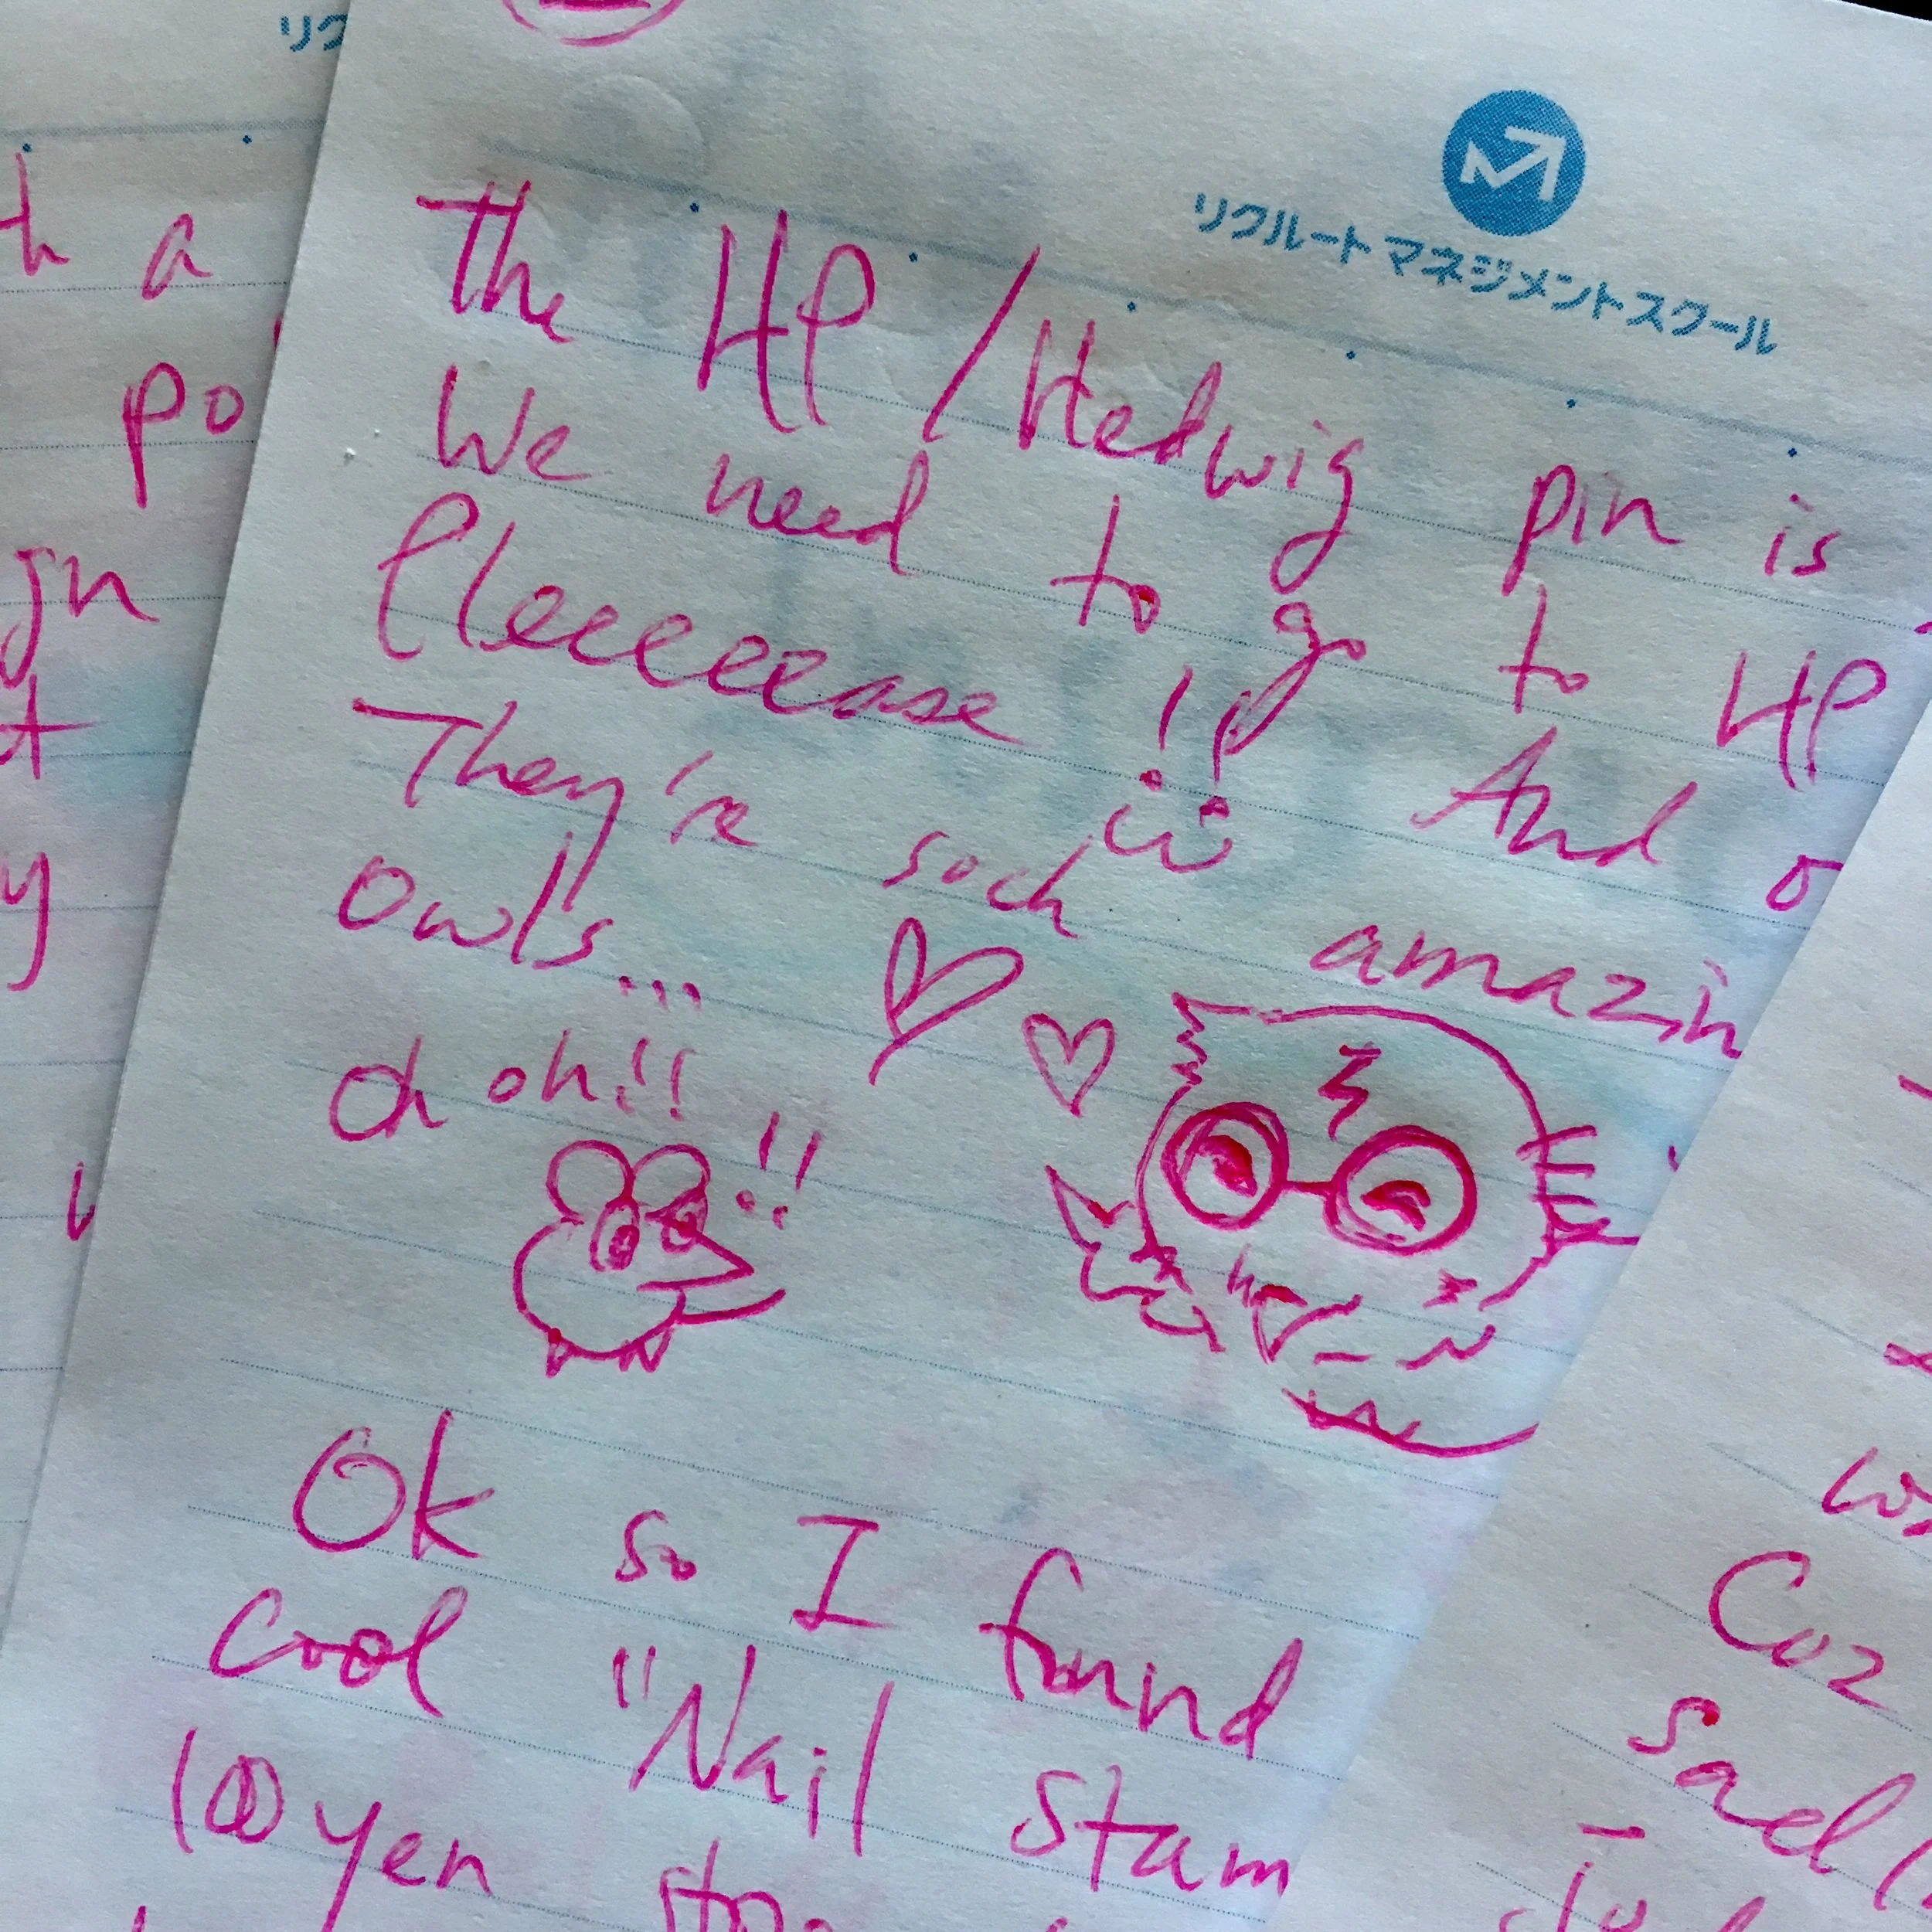 リク
h a
po
gn
t
y
リクルート マネジメントスクール
The HP/Hedwig pin is
We need to go to HP
Pleeeeease!! And o
They're such amazin
owls...
oh oh!!
!!
Ok so I found
cool "Nail Stam
100yen sto
Coz